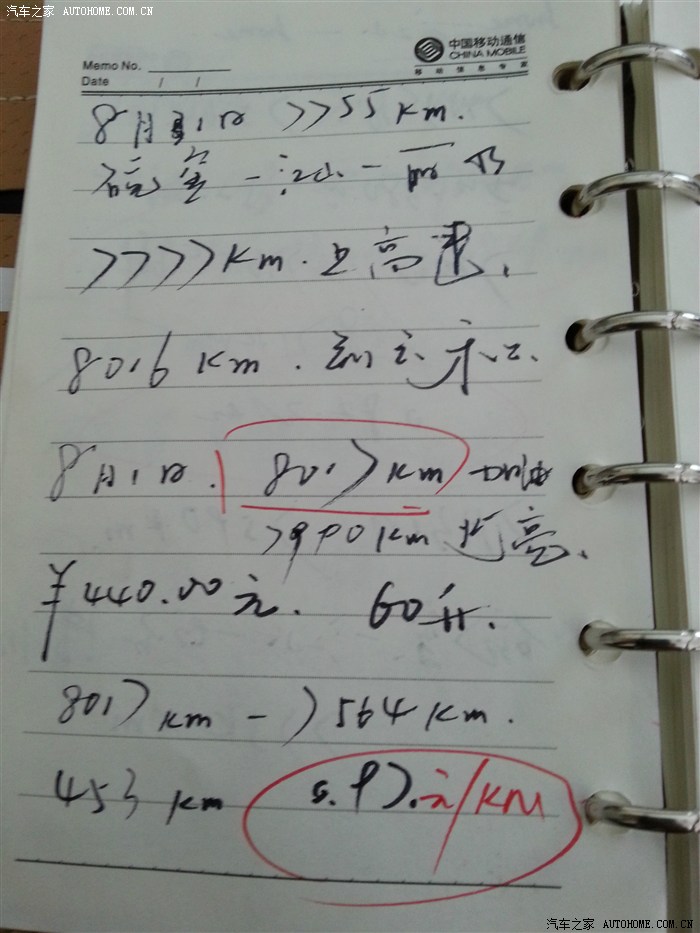 汽车之家 AUTOHOME.COM.CN
中国移动通信
CHINA MOBILE
移动信息专家
Memo No.
Date / /
8月31日 7755 km.
7777 km. 上高速.
8016 km.
8月1日. 8017 km 加油
7990 km 灯亮.
¥440.00元. 60升.
8017 km - 7564 km.
453 km 0.97.元/KM
汽车之家 AUTOHOME.COM.CN